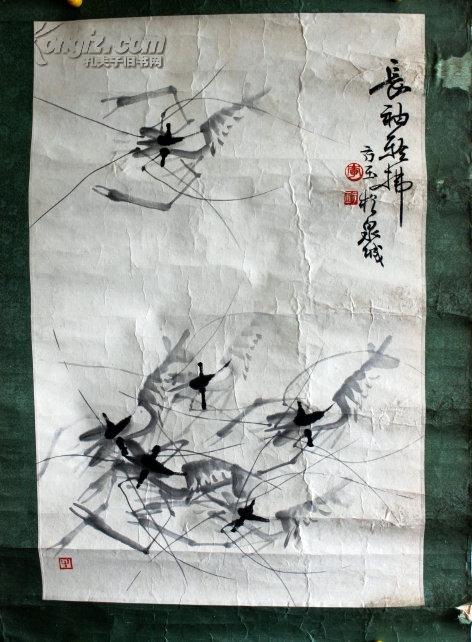 Kongfz.com
孔夫子旧书网
長袖輕拂
方玉於泉城